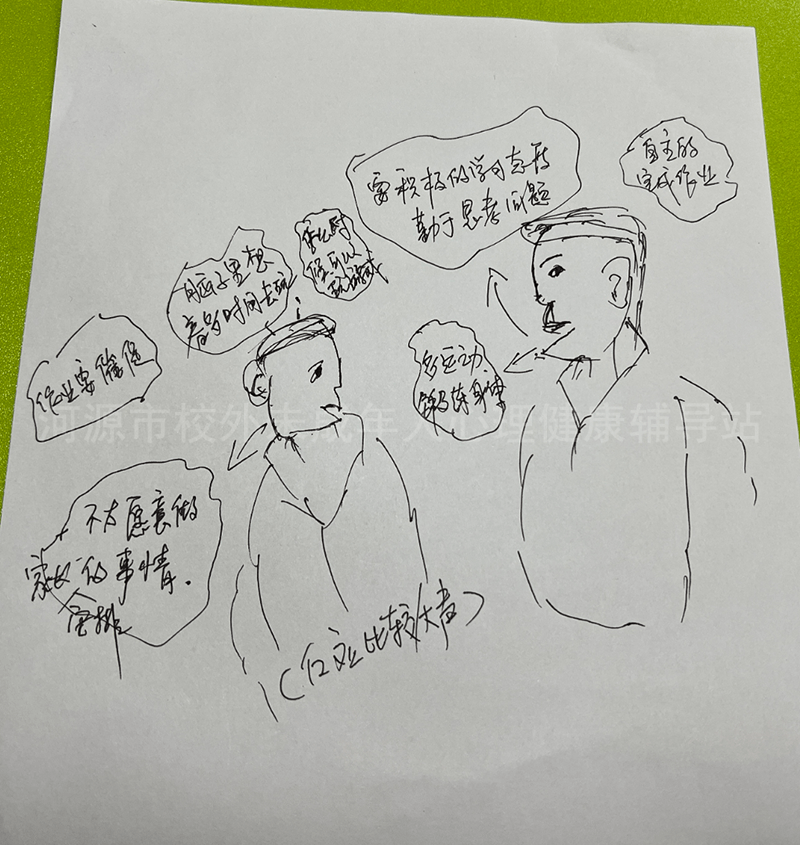 要积极的学习态度
勤于思考问题
自主的
完成作业
休息时
候可以
玩游戏
脑子里想
着多时间去玩
作业要
多运动
锻炼身体
不太愿意做
家长的事情.
安排
(反应比较大声)
河源市校外未成年人心理健康辅导站